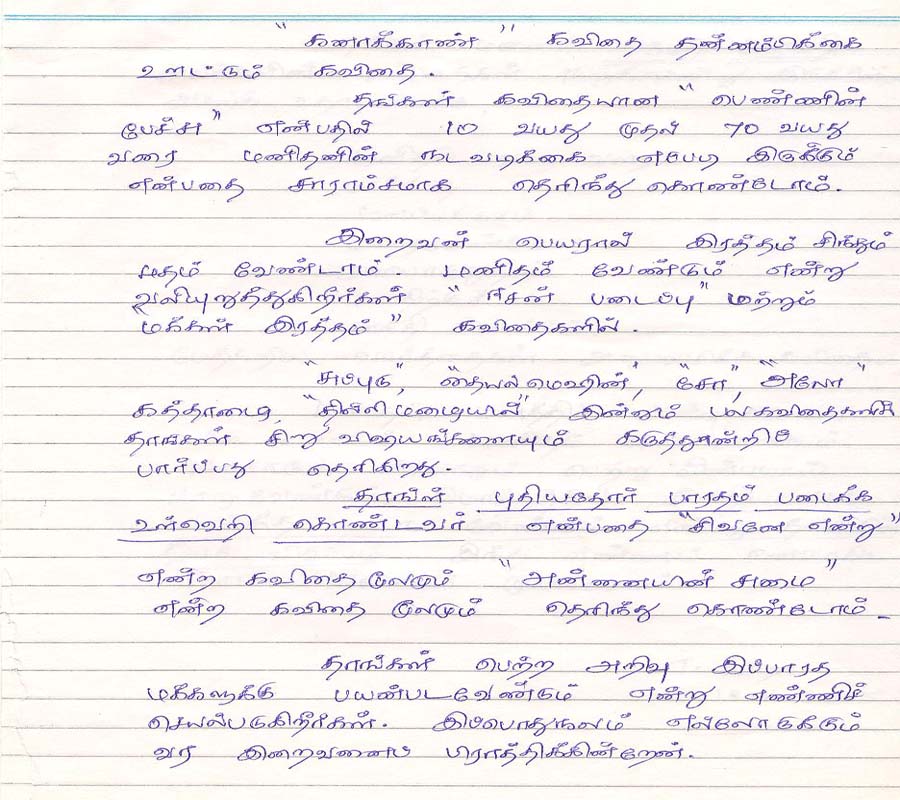 "கனாக்காண்" கவிதை தன்னம்பிக்கை
ஊட்டும் கவிதை.
தங்கள் கவிதையான "பெண்ணின்
பேச்சு" என்பதில் 10 வயது முதல் 70 வயது
வரை மனிதனின் நடவடிக்கை எப்படி இருக்கும்
என்பதை சாராம்சமாக தெரிந்து கொண்டோம்.
இறைவன் பெயரால் இரத்தம் சிந்தும்
மதம் வேண்டாம். மனிதம் வேண்டும் என்று
வலியுறுத்துகிறீர்கள் "ஈசன் படைப்பு" மற்றும்
"மக்கள் இரத்தம்" கவிதைகளில்.
"அப்புடு", "தையல்மெஷின்", "சோ", "அலோ"
கத்தாழை, "தில்லிமழையில்" இன்னும் பல கவிதைகளில்
தாங்கள் சிறு விஷயங்களையும் கருத்தூன்றி
பார்ப்பது தெரிகிறது.
தாங்கள் புதியதோர் பாரதம் படைக்க
உள்வெறி கொண்டவர் என்பதை "சிவனே என்று"
என்ற கவிதை மூலமும் "அன்னையின் சுமை"
என்ற கவிதை மூலமும் தெரிந்து கொண்டோம்.
தாங்கள் பெற்ற அறிவு இப்பாரத
மக்களுக்கு பயன்படவேண்டும் என்று எண்ணிச்
செயல்படுகிறீர்கள். இப்பொதுநலம் எல்லோருக்கும்
வர இறைவனைப் பிராத்திக்கின்றேன்.